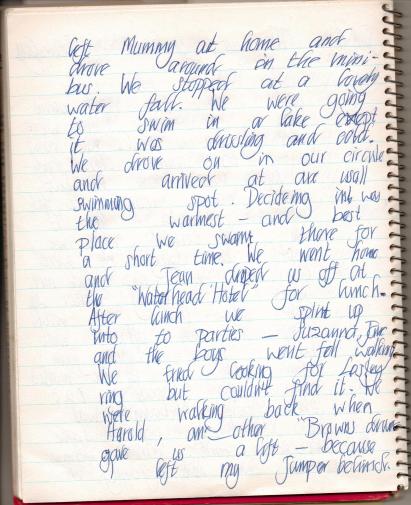 left Mummy at home and
drove around in the mini-
bus. We stopped at a lovely
water fall. We were going
to swim in a lake except
it was drissling and cold.
We drove on in our circule
and arrived at are usall
swimming spot. Decideing it was
the warmest - and best
place we swam there for
a short time. We went home
and Jean droped us off at
the "Waterhead Hotel" for lunch.
After lunch we split up
into to parties - Suzanna, Jane
and the boys went fell walking
We tried looking for Lesley
ring but couldn't find it. We
were walking back when
Harold, an-other "Browns driver
gave us a lift - because
I left my Jumper behind.